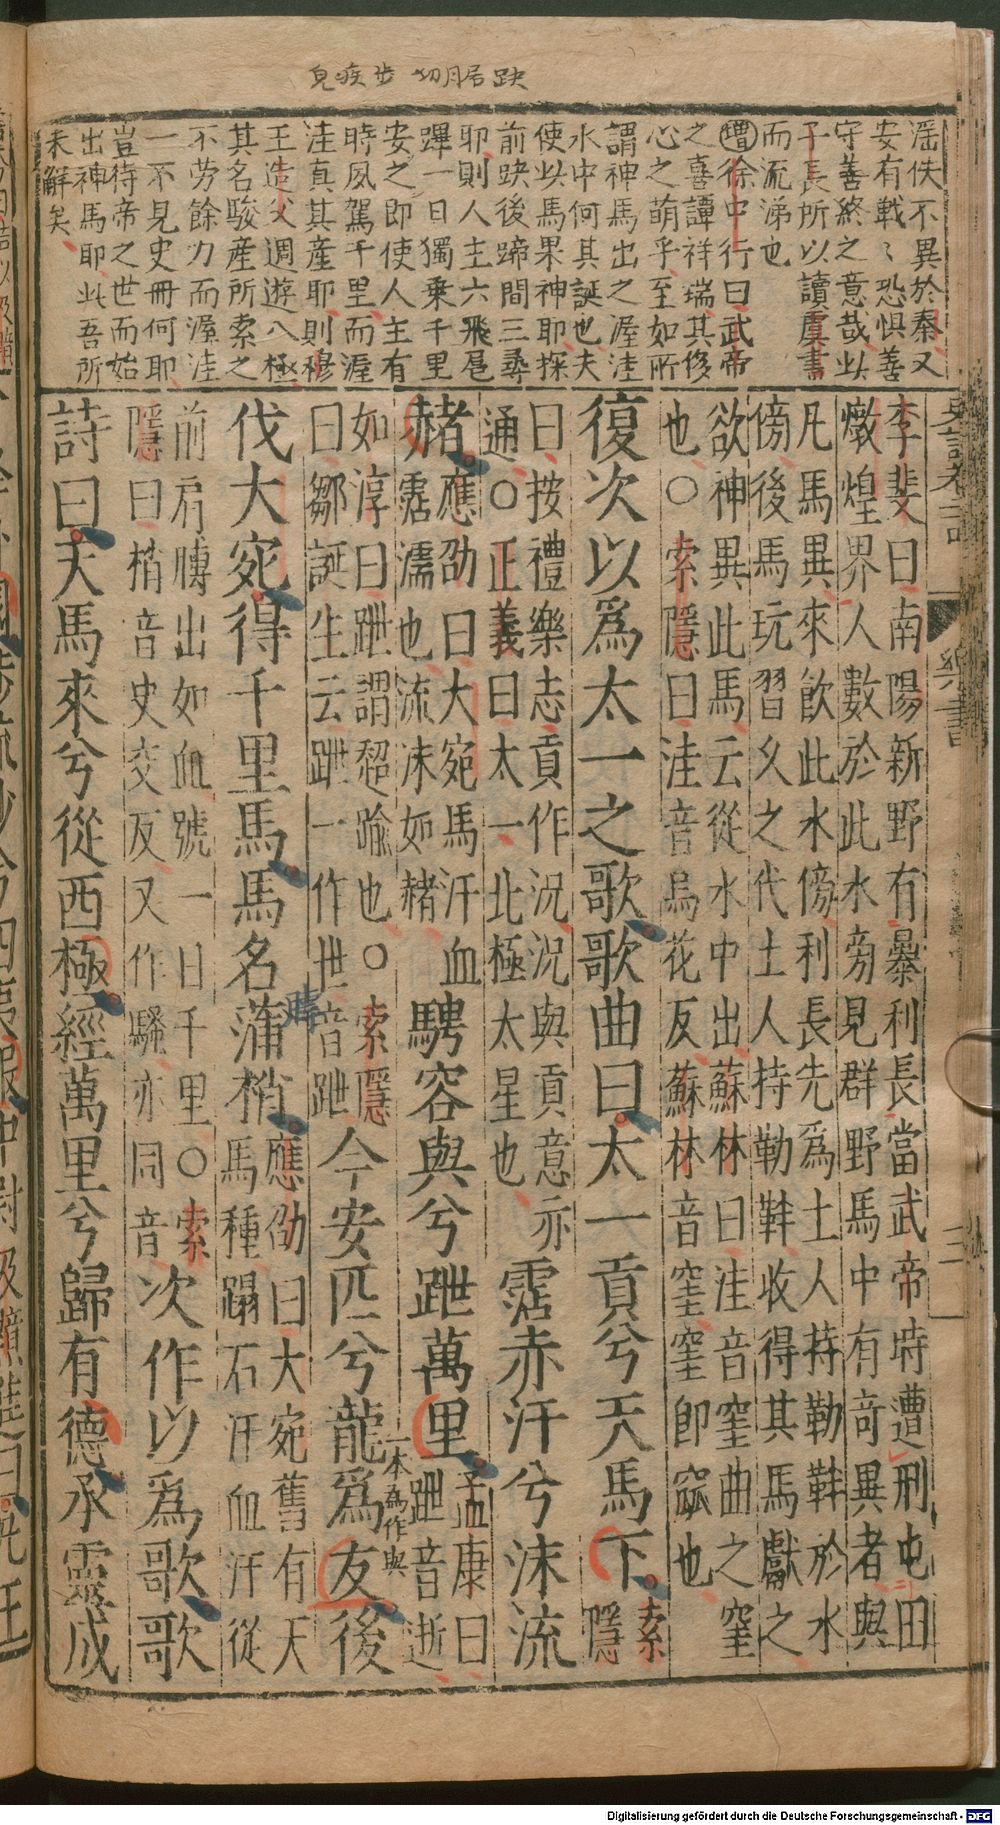 趹居月切步疾皃
滛佚不異於秦又
安有戰〻恐惧善
守善終之意哉此
子長所以讀虞書
而流涕也
增徐中行曰武帝
之喜譚祥瑞其侈
心之萌乎至如所
謂神馬出之渥洼
水中何其誕也夫
使此馬果神耶探
前趹後蹄間三尋
耶則人主六飛扈
蹕一日獨乗千里
安之即使人主有
時夙駕千里而渥
洼真其產耶則穆
王造父週遊八極
其名駿產所索之
不劳餘力而渥洼
一不見史冊何耶
豈待帝之世而始
出神馬耶此吾所
未解矣
樂書
三
李斐曰南陽新野有暴利長當武帝時遭刑屯田
燉煌界人數於此水旁見群野馬中有奇異者與
凡馬異來飲此水傍利長先爲土人持勒靽於水
傍後馬玩習久之代土人持勒靽收得其馬獻之
欲神異此馬云從水中出蘇林曰洼音窐曲之窐
也○索隱曰洼音烏花反蘇林音窐窐即窳也
復次以爲太一之歌歌曲曰太一貢兮天馬下索隱
曰按禮樂志貢作況況與貢意亦
通○正義曰太一北極太星也
霑赤汗兮沫流
赭應劭曰大宛馬汗血
霑濡也流沫如赭
騁容與兮跇萬里孟康曰
跇音逝
如淳曰跇謂超踰也○索隱
曰鄒誕生云跇一作世音跇
今安匹兮龍爲友後
一本為作與
伐大宛得千里馬馬名蒲梢應劭曰大宛舊有天
馬種蹋石汗血汗從
前肩髆出如血號一日千里○索
隱曰梢音史交反又作騷亦同音
次作以爲歌歌
詩曰天馬來兮從西極經萬里兮歸有德承靈威
Digitalisierung gefördert durch die Deutsche Forschungsgemeinschaft - DFG